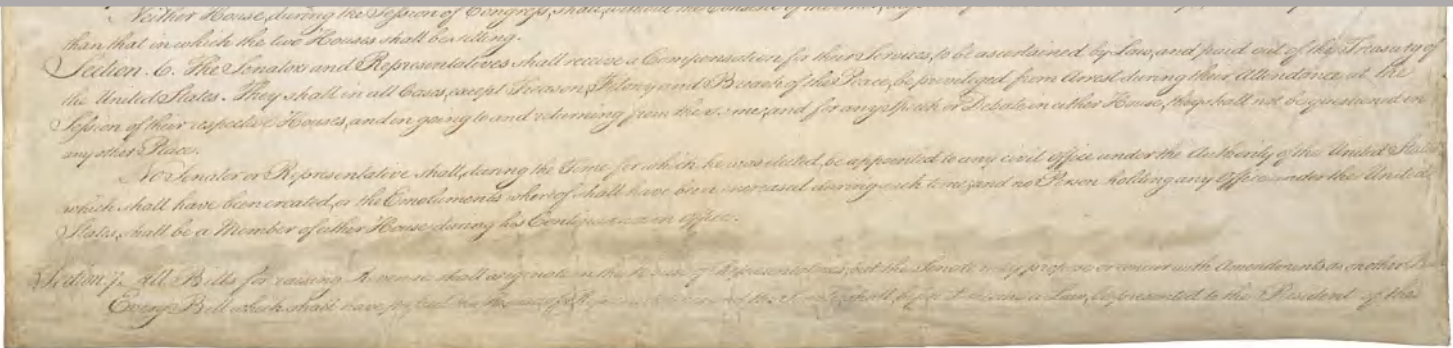 Neither House, during the Session of Congress, shall, without the Consent of the other,
than that in which the two Houses shall be sitting.
Section. 6. The Senators and Representatives shall receive a Compensation for their Services, to be ascertained by Law, and paid out of the Treasury of
the United States. They shall in all Cases, except Treason, Felony and Breach of the Peace, be privileged from Arrest during their Attendance at the
Session of their respective Houses, and in going to and returning from the same; and for any Speech or Debate in either House, they shall not be questioned in
any other Place.
No Senator or Representative shall, during the Time for which he was elected, be appointed to any civil Office under the Authority of the United States,
which shall have been created, or the Emoluments whereof shall have been encreased during such time; and no Person holding any Office under the United
States, shall be a Member of either House during his Continuance in Office.
Section. 7. All Bills for raising Revenue shall originate in the House of Representatives; but the Senate may propose or concur with Amendments as on other
Every Bill which shall have passed the House of Representatives and the Senate, shall, before it become a Law, be presented to the President of the